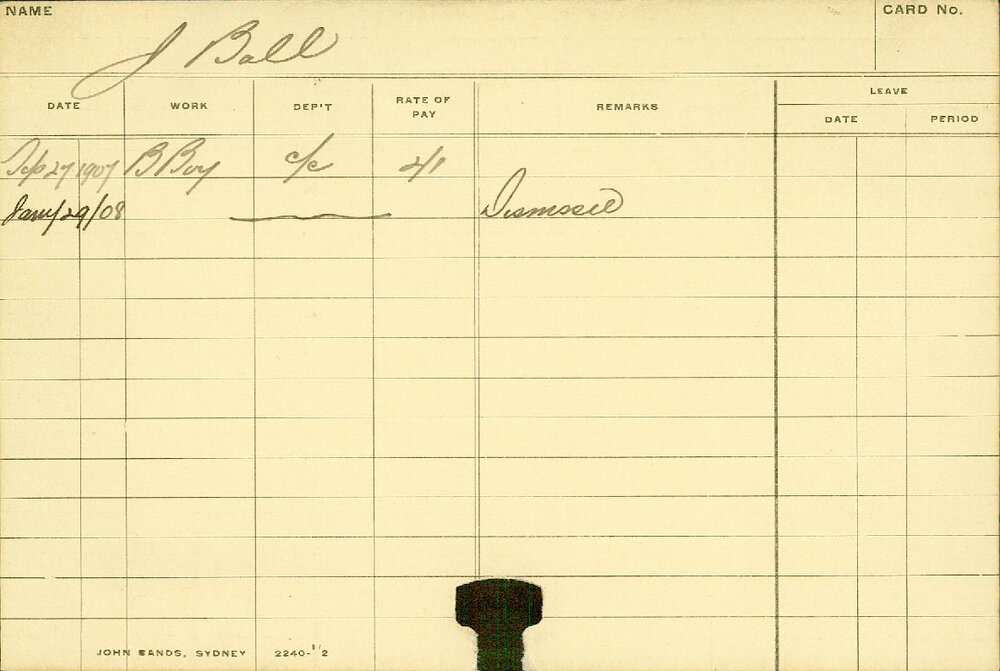 NAME
CARD No.
J Ball
DATE WORK DEP'T RATE OF PAY REMARKS LEAVE
DATE PERIOD
Sep 27 1907 B Boy c/c 2/1
Jany 29/08 Dismissed
JOHN SANDS, SYDNEY 2240-1/2